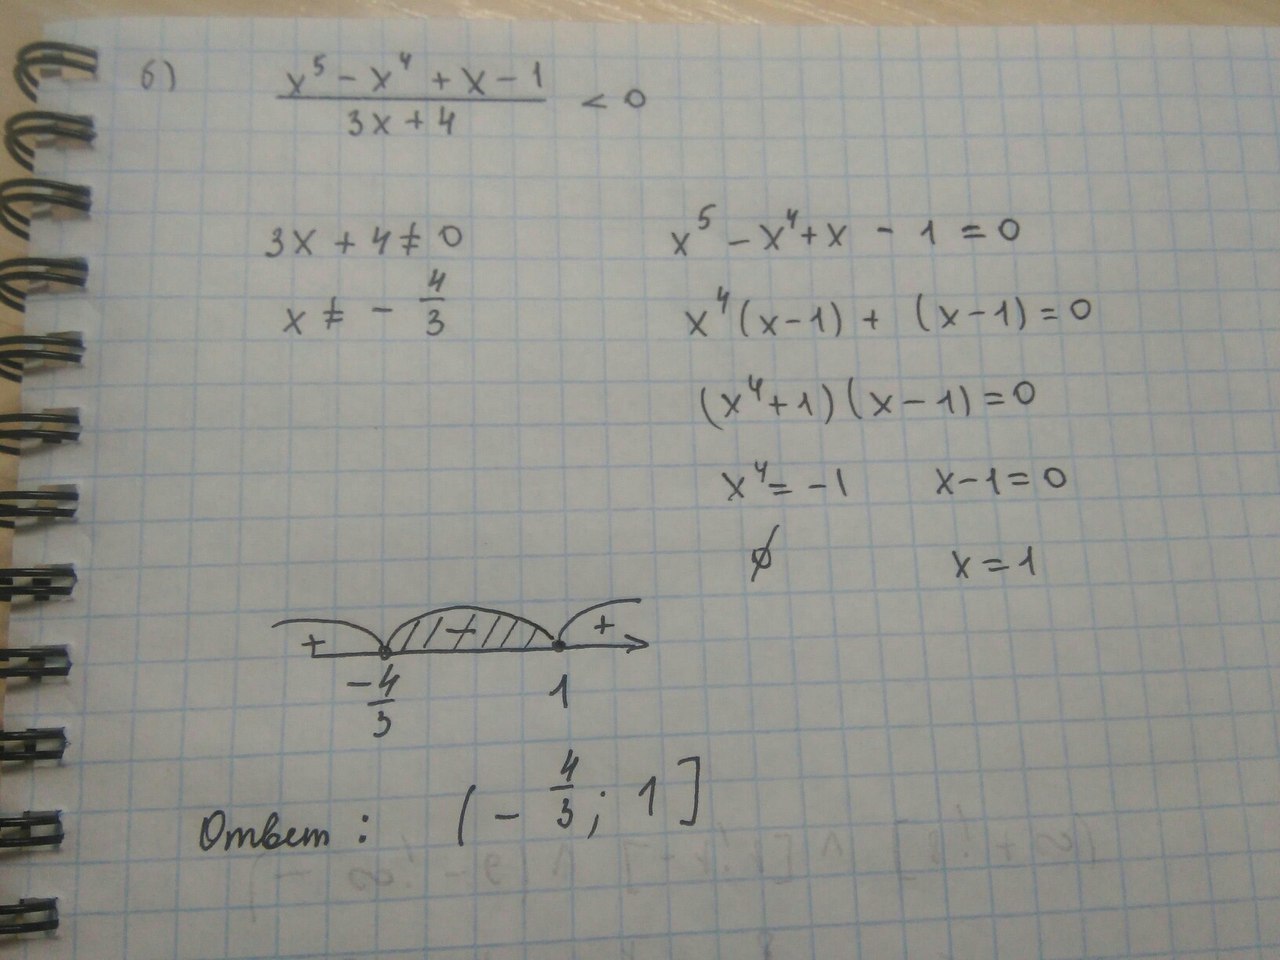 б) x⁵ - x⁴ + x - 1 / 3x + 4 < 0
3x + 4 ≠ 0
x ≠ - 4/3
x⁵ - x⁴ + x - 1 = 0
x⁴(x-1) + (x-1) = 0
(x⁴+1)(x-1) = 0
x⁴ = -1 x-1 = 0
∅ x = 1
+ - +
-4/3 1
Ответ: (- 4/3; 1]